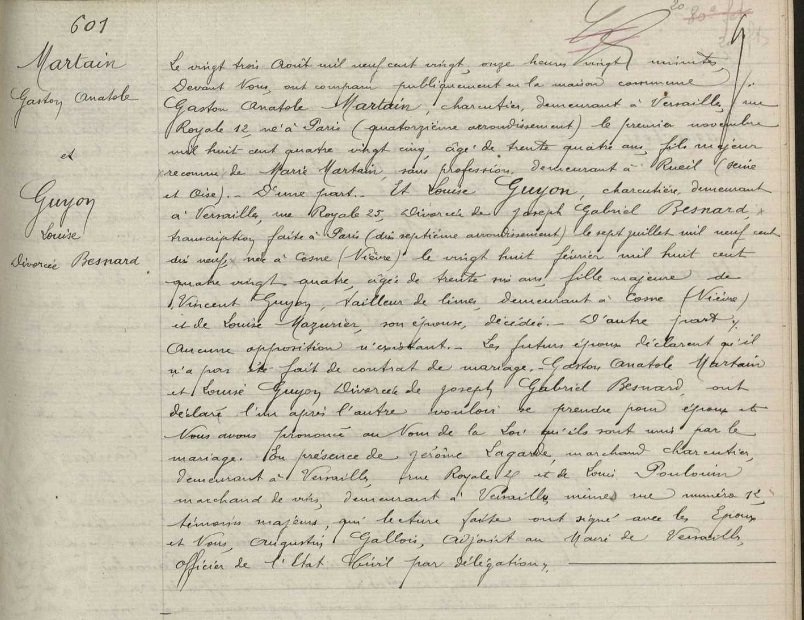 601
Martain
Gaston Anatole
et
Guyon
Louise
Divorcée Besnard
Le vingt trois Août mil neuf cent vingt, onze heures vingt minutes,
Devant Nous, ont comparu publiquement en la maison commune
Gaston Anatole Martain, charcutier, demeurant à Versailles, rue
Royale 12, né à Paris (quatorzième arrondissement) le premier novembre
mil huit cent quatre vingt cinq, âgé de trente quatre ans, fils majeur
reconnu de Marie Martain, sans profession, demeurant à Rueil (Seine
et Oise). _ D'une part. _ Et Louise Guyon, charcutière, demeurant
à Versailles, rue Royale 25, Divorcée de Joseph Gabriel Besnard,
transcription faite à Paris (dix septième arrondissement) le sept juillet mil neuf cent
dix neuf, née à Cosne (Nièvre) le vingt huit février mil huit cent
quatre vingt quatre, âgée de trente six ans, fille majeure de
Vincent Guyon, tailleur de limes, demeurant à Cosne (Nièvre)
et de Louise Mazurier, son épouse, décédée. _ D'autre part %.
Aucune opposition n'existant. _ Les futurs époux déclarent qu'il
n'a pas été fait de contrat de mariage. _ Gaston Anatole Martain
et Louise Guyon Divorcée de Joseph Gabriel Besnard, ont
déclaré l'un après l'autre vouloir se prendre pour époux et
Nous avons prononcé au Nom de la Loi qu'ils sont unis par le
mariage. En présence de Jérôme Lagarde, marchand charcutier,
demeurant à Versailles, rue Royale et de Louis Poulouin
marchand de vins, demeurant à Versailles même rue numéro 12,
témoins majeurs, qui lecture faite ont signé avec les Epoux
et Nous, Augustin Gallois, Adjoint au Maire de Versailles,
Officier de l'Etat Civil par délégation,